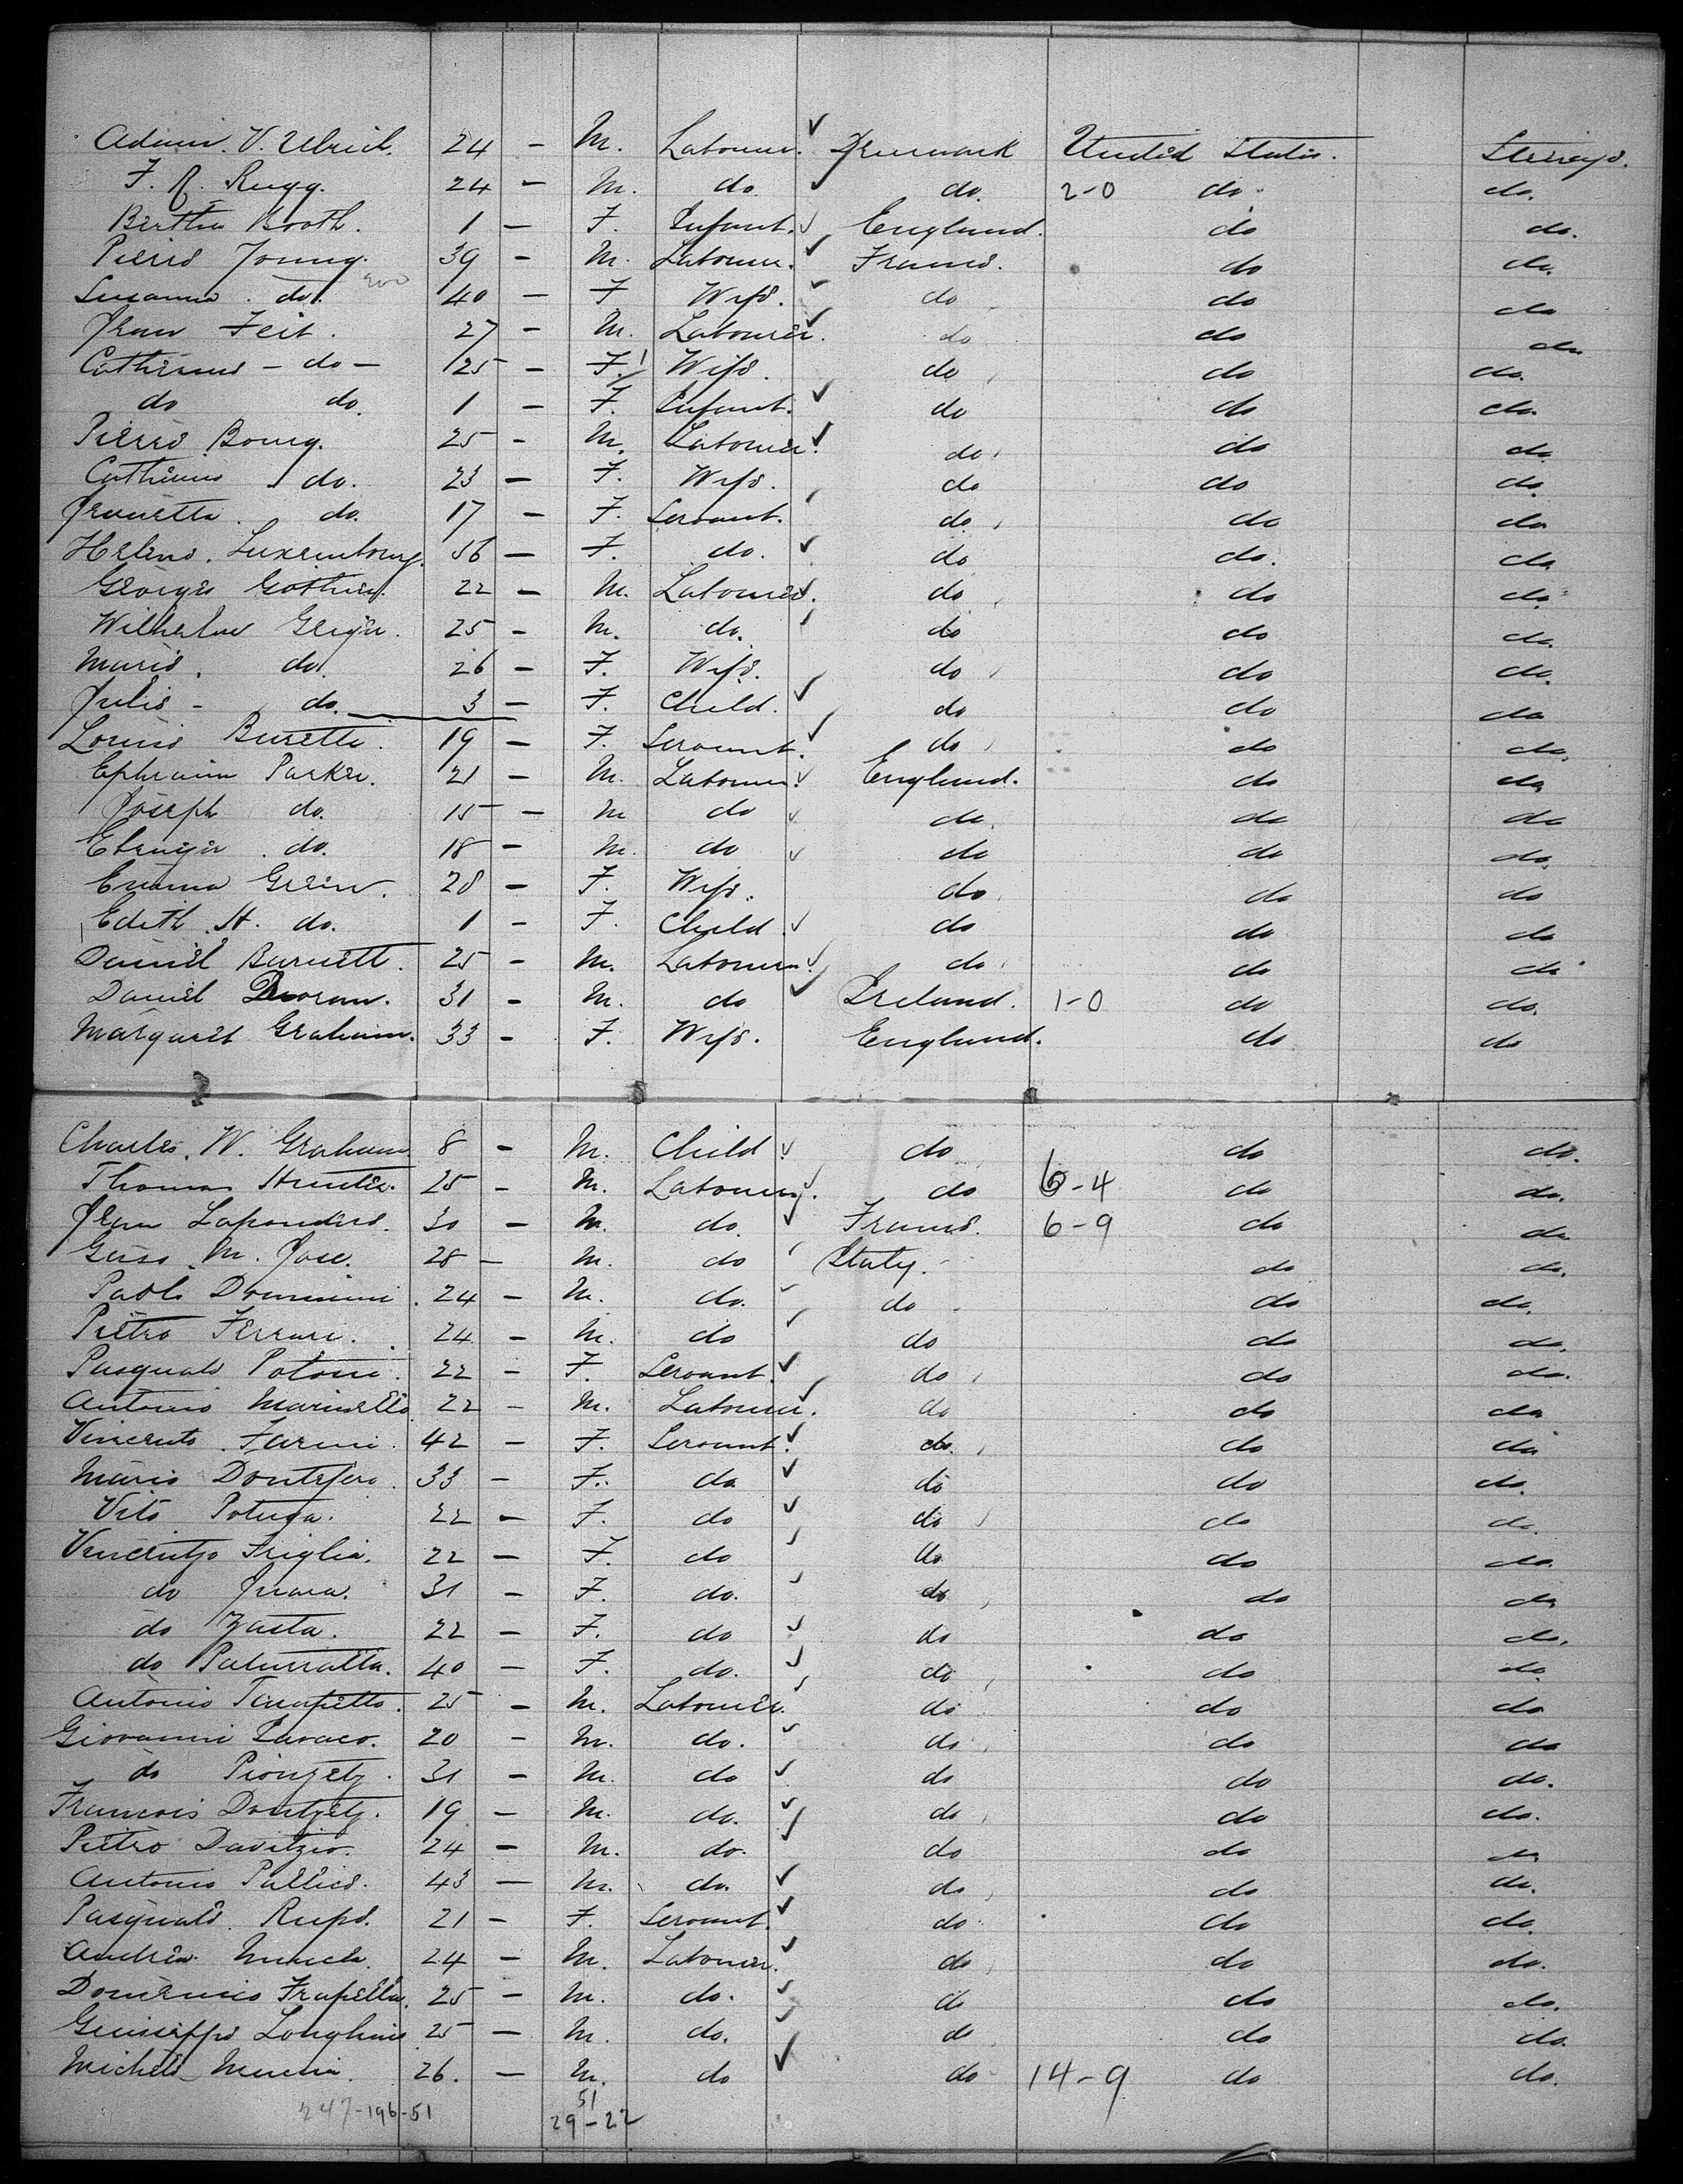 Adam. V. Ulrich. 24 - M. Labourer. ✓ Denmark United States. Steerage.
F. A. Rugg. 24 - M. do. ✓ do. 2-0 do. do.
Bertha Booth. 1 - F. Infant. ✓ England. do do.
Pierre Young. 39 - M. Labourer. ✓ France. do do.
Susanna. do. 40 - F Wife. do do do
Jean Feit. 27 - M. Labourer. ✓ do do do
Catherine - do - 25 - F. Wife. do do do.
do do. 1 - F. Infant. ✓ do do do.
Pierre Bourg. 25 - M. Labourer. ✓ do do do
Catherine do. 23 - F. Wife. do do do.
Jeanette. do. 17 - F. Servant. do do do
Helene. Luxembourg. 56 - F. do. ✓ do do. do
George Gothier. 22 - M. Labourer. ✓ do do do
Wilhelm Geiger. 25 - M. do. do do do.
Marie. do. 26 - F. Wife. do do do.
Julie - do. 3 - F. Child. ✓ do do do
Louise Burette. 19 - F. Servant. ✓ do do do.
Ephraim Parker. 21 - M. Labourer. ✓ England. do do
Joseph do. 15 - M do ✓ do. do do
do. 18 - M. do ✓ do do do
Emma Green. 28 - F. Wife. do do do
Edith. H. do. 1 - F. Child ✓ do do do
Daniel Burnett. 25 - M. Labourer. ✓ do do do
Daniel Doran. 31 - M. do ✓ Ireland. 1-0 do do.
Margaret Graham. 33 - F. Wife. England. do do
Charles. W. Graham 8 - M. Child ✓ do do do.
Thomas Hunter. 25 - M. Labourer. ✓ do 6-4 do do.
Jean 30 - M. do. ✓ France. 6-9 do do.
M. Jose. 28 - M. do Italy. do do.
Paolo 24 - M. do. do do do.
Pietro Ferrari. 24 - M. do do do do.
Pasquale Potoni. 22 - F. Servant. ✓ do do do.
Antonio Marinello 22 - M. Labourer. ✓ do do do
Vincento Farini. 42 - F. Servant. ✓ do. do do
Maria 33 - F. do ✓ do do do.
Vito 22 - F. do ✓ do do do.
Vincentzo Friglia. 22 - F. do do do do.
do 31 - F. do. do do do
do Zasta. 22 - F. do ✓ do do do.
do 40 - F. do. do do do
Antonio 25 - M. Labourer. do do do
Giovanni 20 - M. do. do do do
do 31 - M. do ✓ do do do.
Francois 19 - M. do. ✓ do do do.
Pietro Davitzio. 24 - M. do. do do do
Antonio 43 - M. do. ✓ do do do.
Pasquale. 21 - F. Servant. ✓ do do do.
Andrea 24 - M. Labourer. ✓ do do do.
Domenico Frapella. 25 - M. do. do do do.
Guiseppe 25 - M. do. do do do.
Michele 26. - M. do ✓ do 14-9 do do.
247-196-51 51
29-22